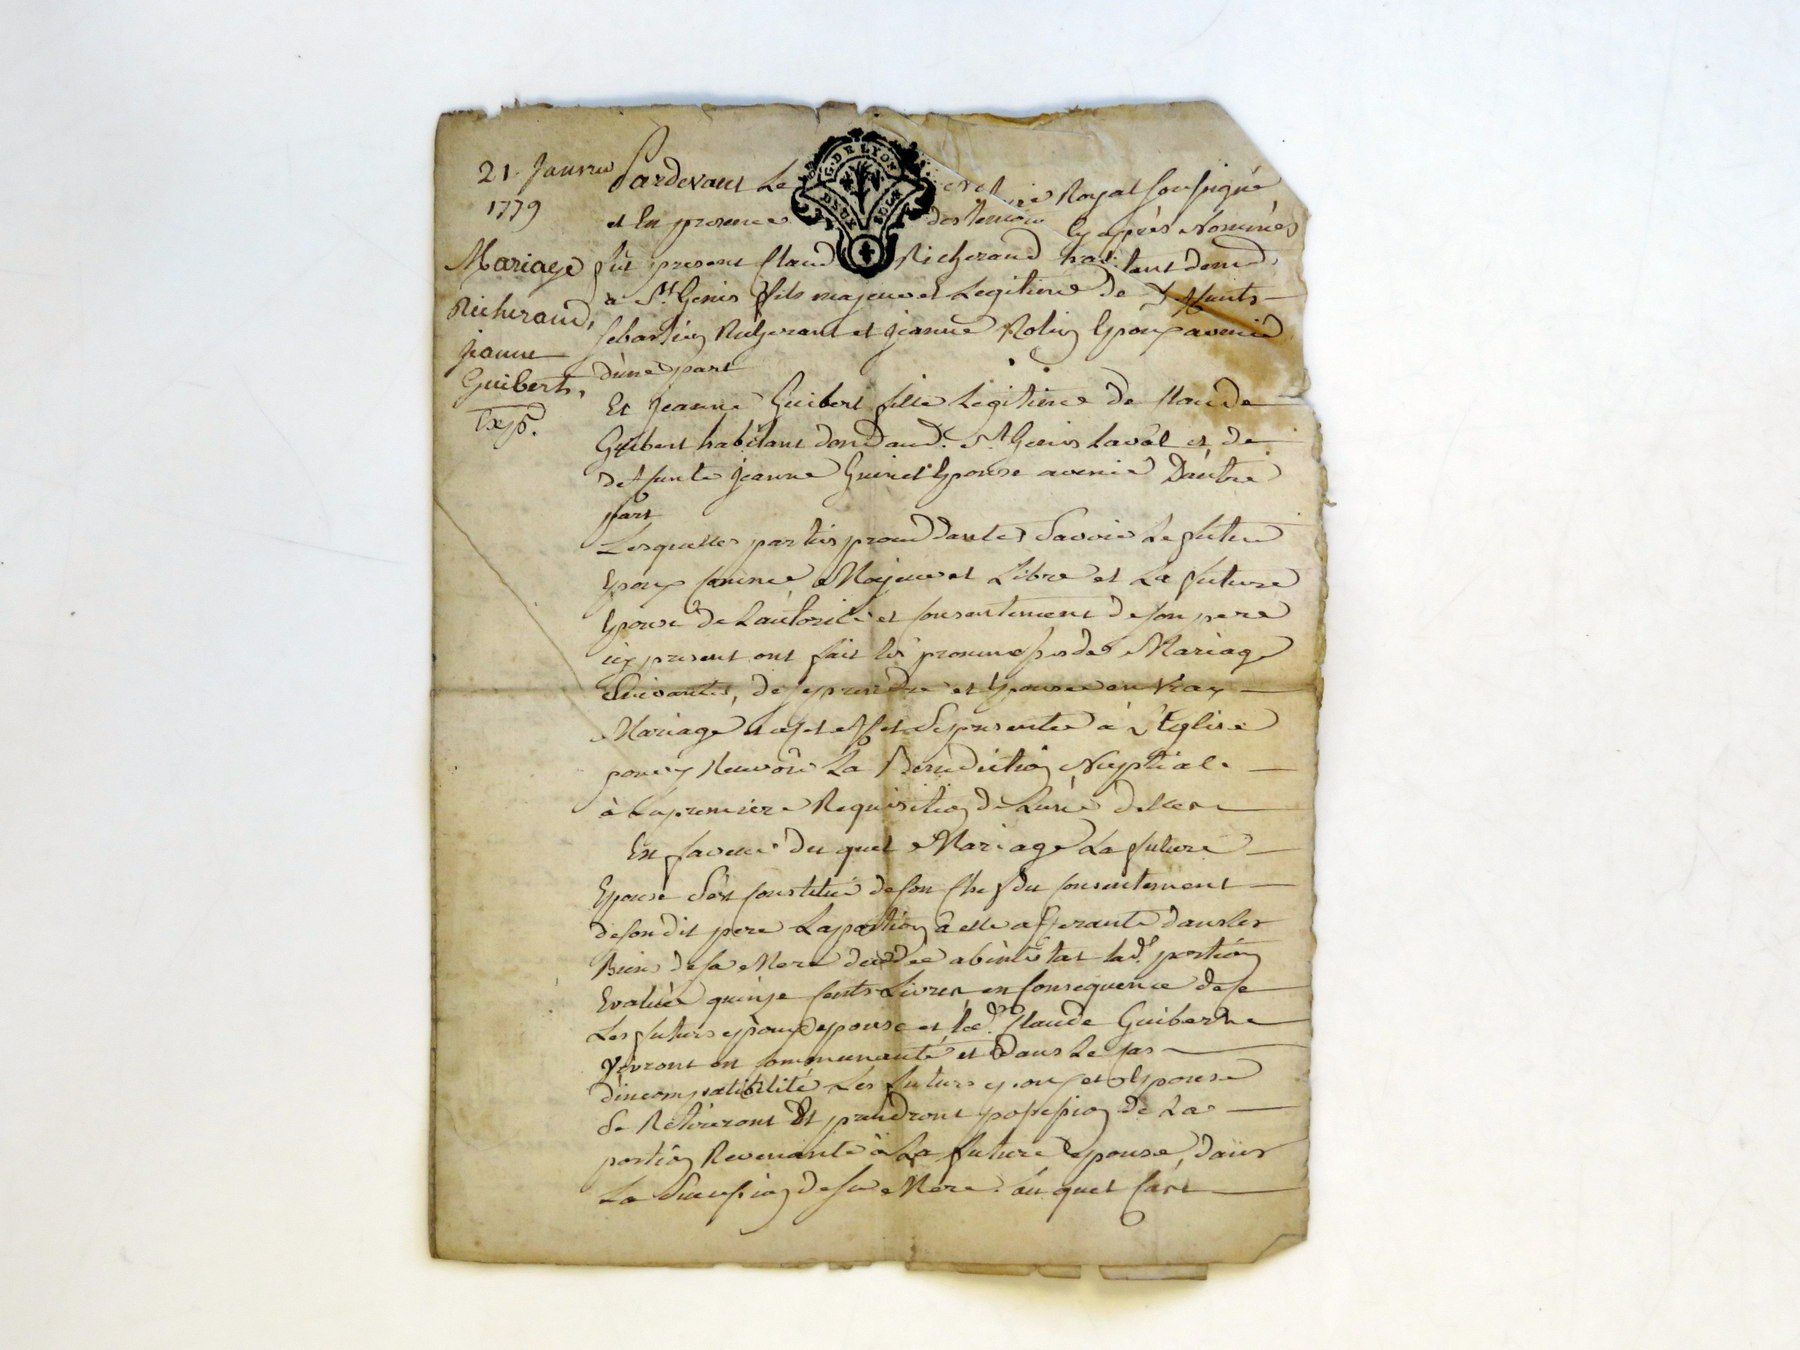 21 Janvier
1779
Mariage
Richerand,
jeanne
Guibert,
Exp.
G. DE LYON
DEUX SOLS
Pardevant Le Royal soussigné
et En presence des temoins Cy après Nommés
fut present Claude Richerand habitant demt.
a St. Genis fils majeur et Legitime de deffunts
sebastien Richerand et jeanne Rolin Epoux avenir
d'une part
Et jeanne Guibert fille Legitime de Claude
Guibert habitant dond. St. Genis Laval et de
deffunte jeanne Guinet Epouse avenir D'autre
part
Lesquelles parties procedantes Savoir Le futur
Epoux comme Majeur et Libre et La future
Epouse de L'autorité et consentement de son pere
icy present ont fait les promesses de Mariage
Suivantes, de se prendre et Epouser en vray
Mariage et a cet effet de se presenter à L'Eglise
pour y Recevoir La Benediction Nuptiale
à La premiere Requisition de L'une delles
En faveur du quel Mariage La future
Epouse S'est constitué de son Chef du consentement
de son dit pere La portion à elle afferante dans les
Biens de sa Mere decedée abintestat lad. portion
Evaluée quinze Cents Livres en consequence de ce
Les futurs epoux et epouse et led. Claude Guibert
vivront en communauté et dans Le cas
d'incompatibilité Les futurs epoux et Epouse
Se Retireront Et prendront possession de La
portion Revenante à La future Epouse, dans
La Succession de sa Mere. Au quel Cas